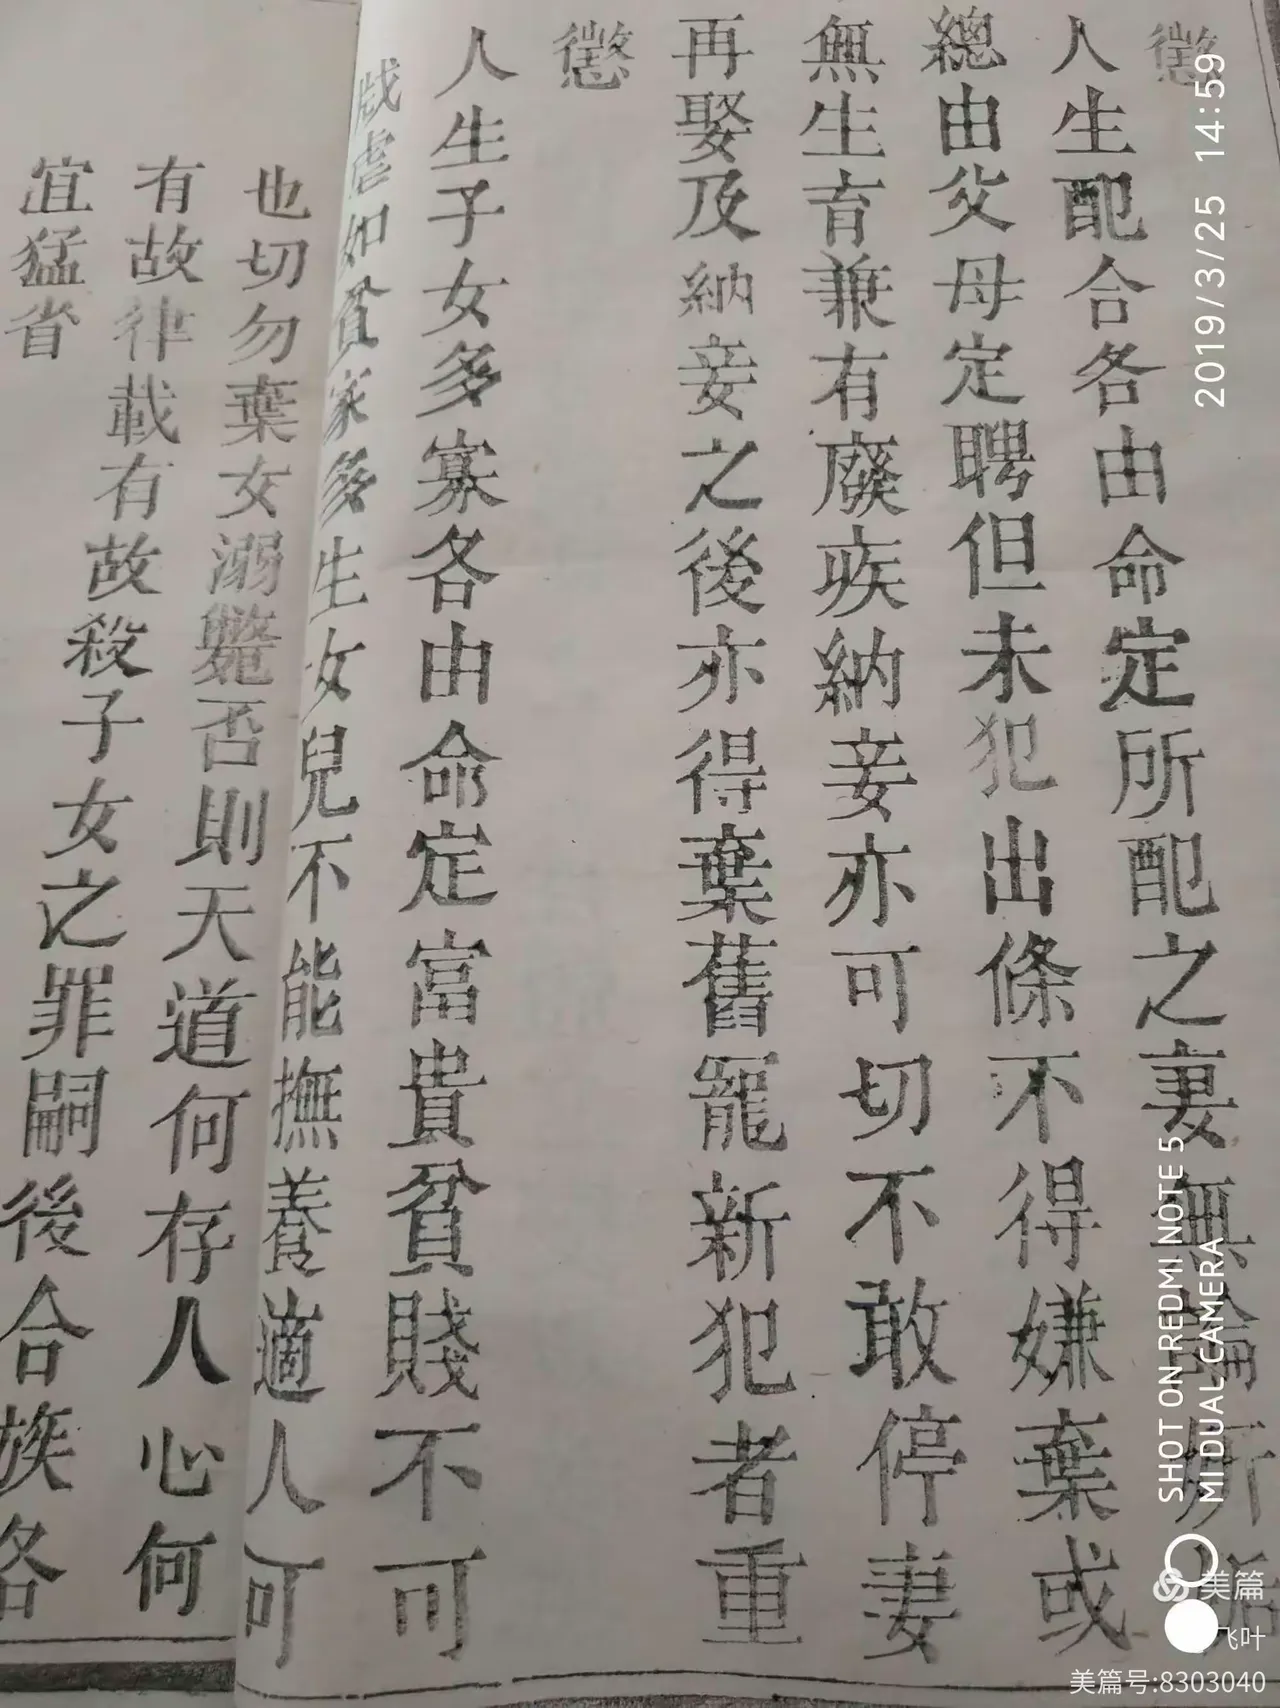 懲
人生配合各由命定所配之妻無論妍媸
總由父母定聘但未犯出條不得嫌棄或
無生育兼有廢疾納妾亦可切不敢停妻
再娶及納妾之後亦得棄舊寵新犯者重
懲
人生子女多寡各由命定富貴貧賤不可
戕虐如貧家多生女兒不能撫養適人可
也切勿棄女溺斃否則天道何存人心何
有故律載有故殺子女之罪嗣後合族各
宜猛省
2019/3/25 14:59
SHOT ON REDMI NOTE 5
MI DUAL CAMERA
美篇
飞叶
美篇号:8303040